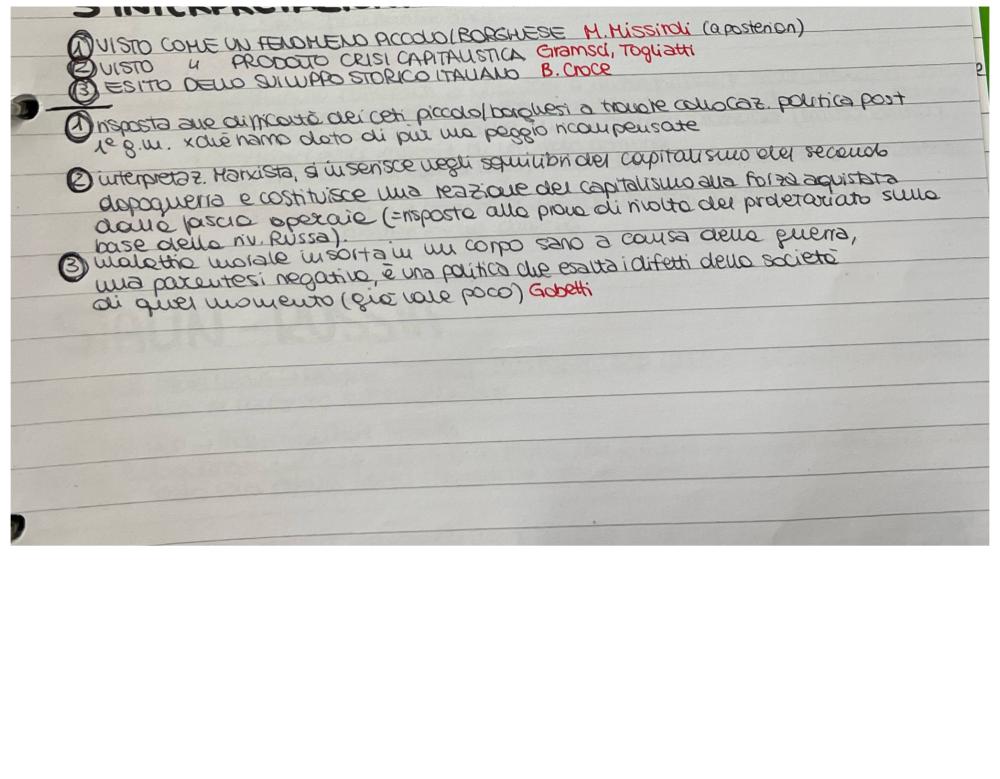 3 INTERPRETAZIONI
① VISTO COME UN FENOMENO PICCOLO/BORGHESE M. Missiroli (a posteriori)
② VISTO " PRODOTTO CRISI CAPITALISTICA Gramsci, Togliatti
③ ESITO DELLO SVILUPPO STORICO ITALIANO B. Croce
① risposta alle difficoltà dei ceti piccolo/borghesi a trovare collocaz. politica post
1ª g.m. xchè hanno dato di più ma peggio ricompensate
② interpretaz. Marxista, si inserisce negli squilibri del capitalismo del secondo
dopoguerra e costituisce una reazione del capitalismo alla forza aquistata
dalla fascia operaie (=risposta alle prove di rivolta del proletariato sulla
base della riv. Russa).
③ malattia morale insorta in un corpo sano a causa della guerra,
una parentesi negativa, è una politica che esalta i difetti della società
di quel momento (già vale poco) Gobetti
2